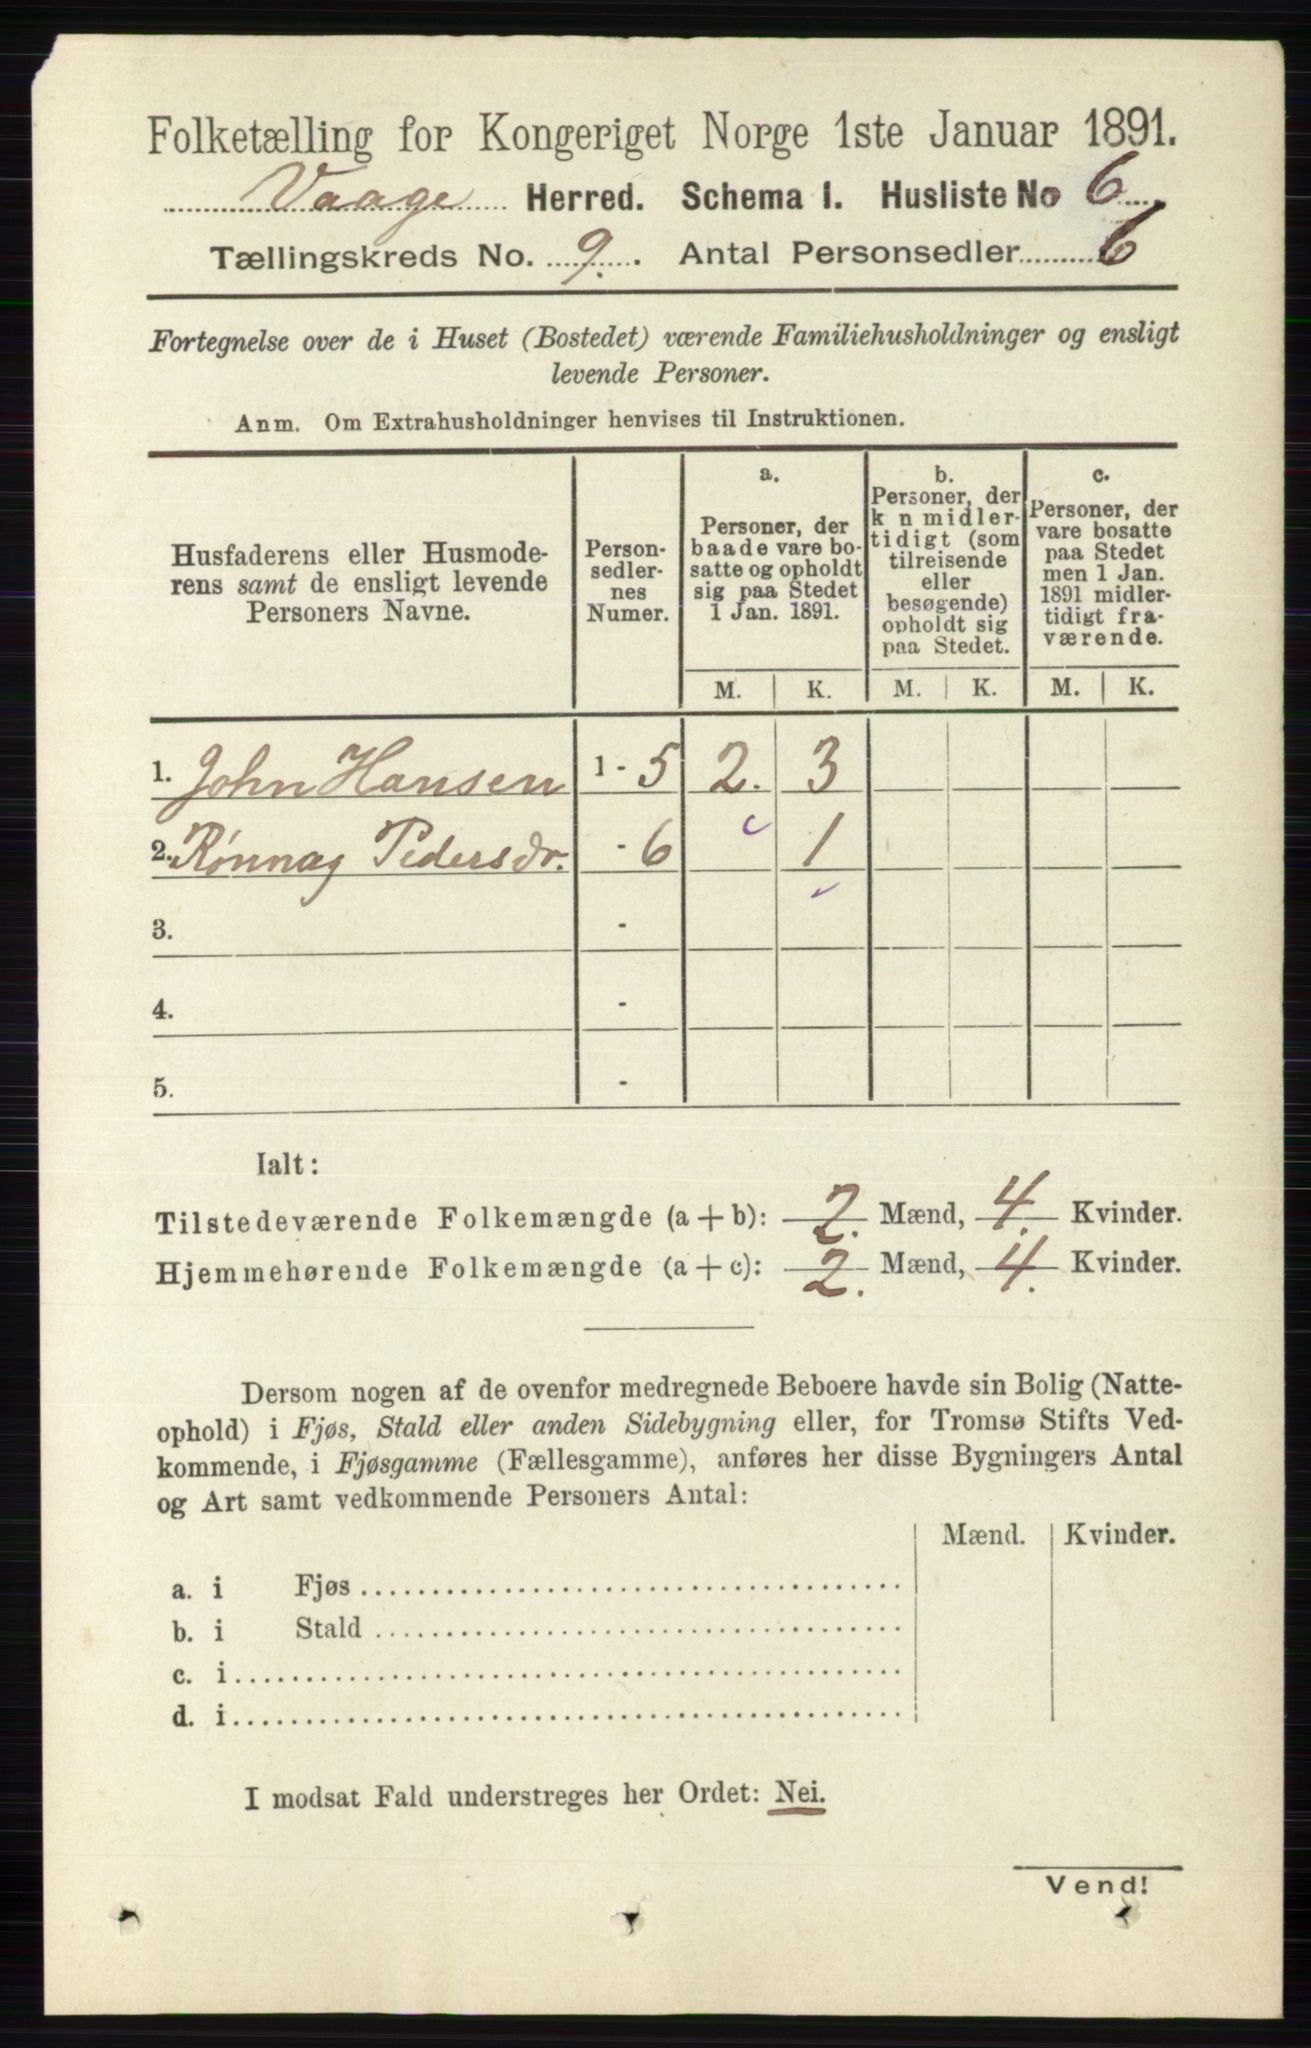 Folketælling for Kongeriget Norge 1ste Januar 1891.
Vaage Herred. Schema I. Husliste No 6
Tællingskreds No. 9. Antal Personsedler 6
Fortegnelse over de i Huset (Bostedet) værende Familiehusholdninger og ensligt
levende Personer.
Anm. Om Extrahusholdninger henvises til Instruktionen.
Husfaderens eller Husmode-
rens samt de ensligt levende
Personers Navne.
Person-
sedler-
nes
Numer.
a.
Personer, der
baade vare bo-
satte og opholdt
sig paa Stedet
1 Jan. 1891.
b.
Personer, der
k n midler-
tidigt (som
tilreisende
eller
besøgende)
opholdt sig
paa Stedet.
c.
Personer, der
vare bosatte
paa Stedet
men 1 Jan.
1891 midler-
tidigt fra-
værende.
M. K. M. K. M. K.
1. John Hansen 1 - 5 2. 3
2. Rønnag Pedersdr. - 6 1
3. -
4. -
5. -
Ialt:
Tilstedeværende Folkemængde (a + b): 2. Mænd, 4. Kvinder.
Hjemmehørende Folkemængde (a + c): 2. Mænd, 4. Kvinder.
Dersom nogen af de ovenfor medregnede Beboere havde sin Bolig (Natte-
ophold) i Fjøs, Stald eller anden Sidebygning eller, for Tromsø Stifts Ved-
kommende, i Fjøsgamme (Fællesgamme), anføres her disse Bygningers Antal
og Art samt vedkommende Personers Antal:
Mænd. Kvinder.
a. i Fjøs
b. i Stald
c. i
d. i
I modsat Fald understreges her Ordet: Nei.
Vend!